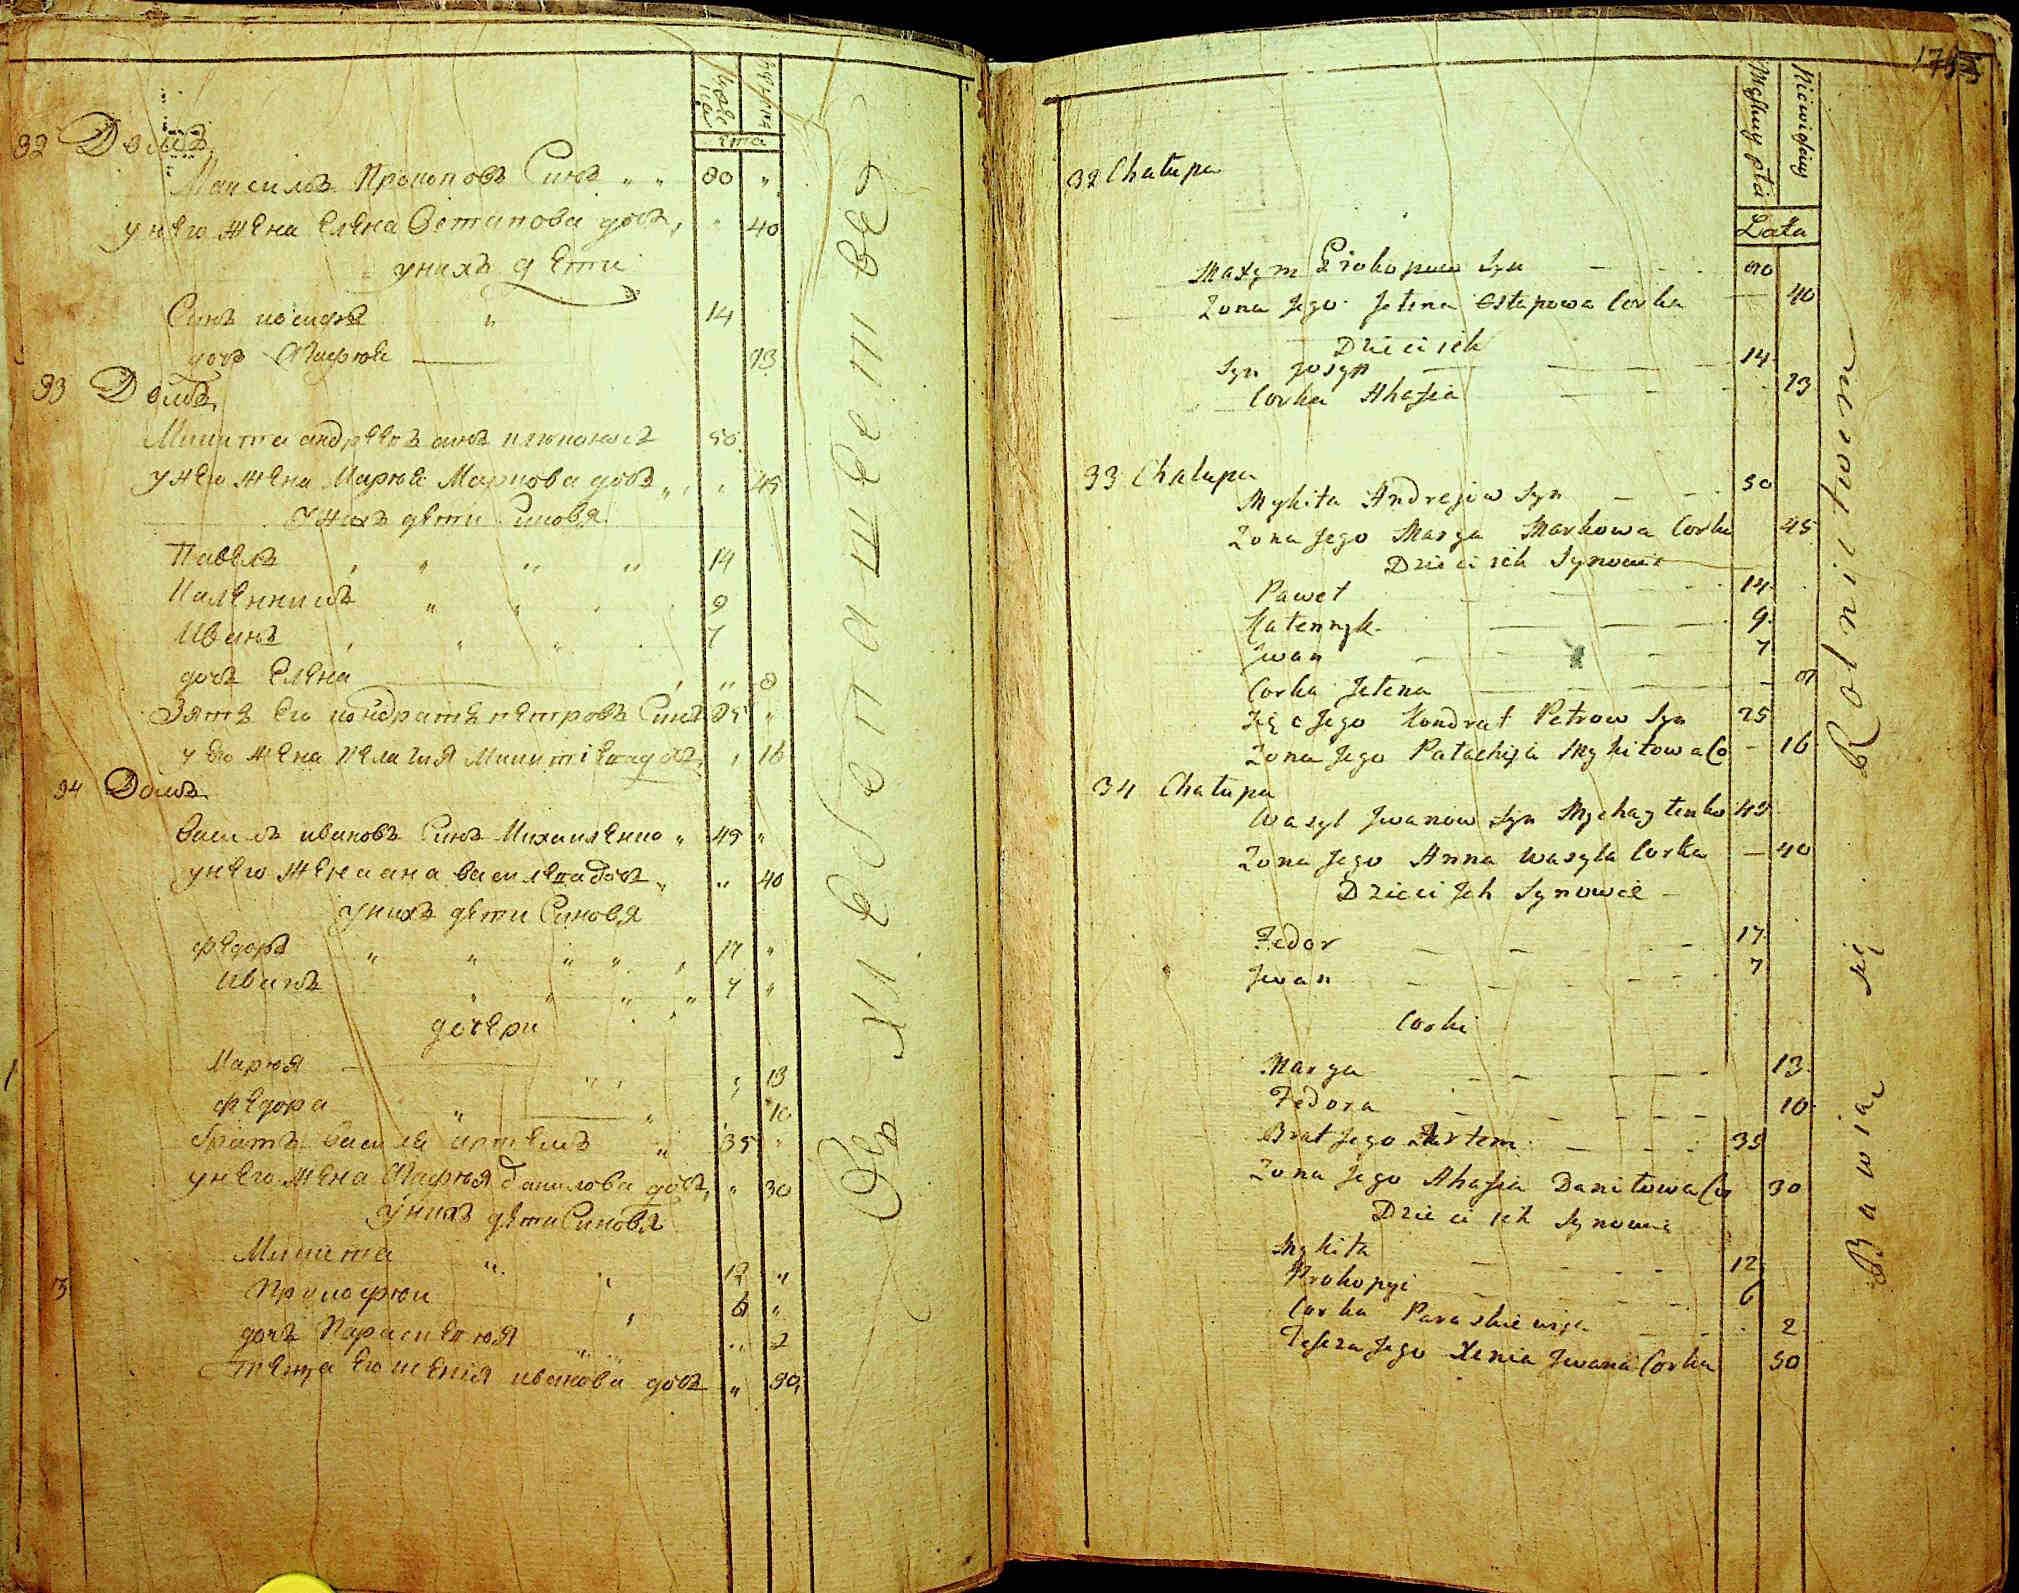 Лѣта
32 Домъ
Максимъ Прокоповъ Синъ " " 80 "
у него жена Елена Остапова дочь " 40
у нихъ дети
Синъ иосифъ " 14
дочь Агафия 13
33 Домъ
Микита андреевъ синъ 50
у него жена Мария Маркова дочь " 45
У нихъ дети Синовя
Павелъ " " " 14
Каленникъ " " 9
Иванъ " " 7
дочь Елена " 8
Зять его кондратъ петровъ Синъ 25 "
у его жена пелагия Микитина дочь " 16
34 Домъ
Василь ивановъ Синъ Михайленко " 45 "
у него жена анна Василева дочь " 40
У нихъ дети Синовя
Федоръ " " " " 17 "
Иванъ " " " " 7 "
дочери
Мария " 13
Федора " " 10
братъ Василя артемъ " 35 "
у него жена Агафия данилова дочь " 30
У нихъ дети Синовя
Микита " " 12 "
Прокофий " 6 "
дочь Параскевия " 2
теща его ксения иванова дочь " 50
Вси Хлебопашествѣ
175
Męskiey płci
Niewieściey
Lata
32 Chałupa
Maxym Prokopow Syn 80
Zona Jego Jelena Ostapowa Corka 40
Dzieci ich
Syn Josyp 14
Corka Ahafia 13
33 Chałupa
Mykita Andrejow Syn 50
Zona Jego Marya Markowa Corka 45
Dzieci ich Synowie
Paweł 14
Kalennyk 9
Jwan 7
Corka Jelena 8
Zięc Jego Kondrat Petrow Syn 25
Zona Jego Palachija Mykitowa Co 16
34 Chałupa
Wasyl Jwanow Syn Mychayłenko 45
Zona Jego Anna Wasyla Corka 40
Dzieci Jch Synowie
Fedor 17
Jwan 7
Corki
Marya 13
Fedora 10
Brat Jego Artem 35
Zona Jego Ahafia Daniłowa Co 30
Dzieci ich Synowie
Mykita 12
Prokopyi 6
Corka Paraskiewija 2
Teścza Jego Xenia Jwana Corka 50
Bawia się Rolnictwem